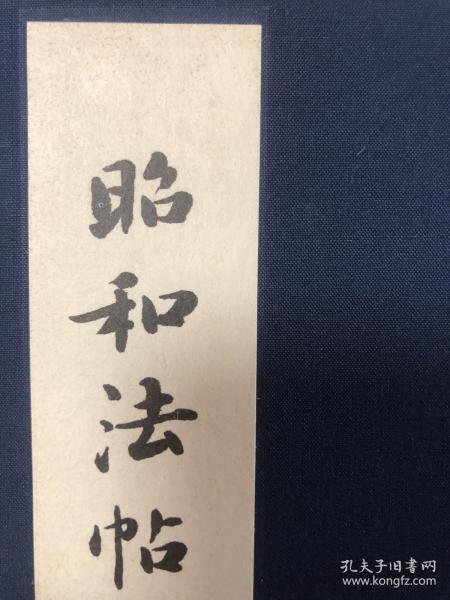 昭和法帖
孔夫子旧书网
www.kongfz.com